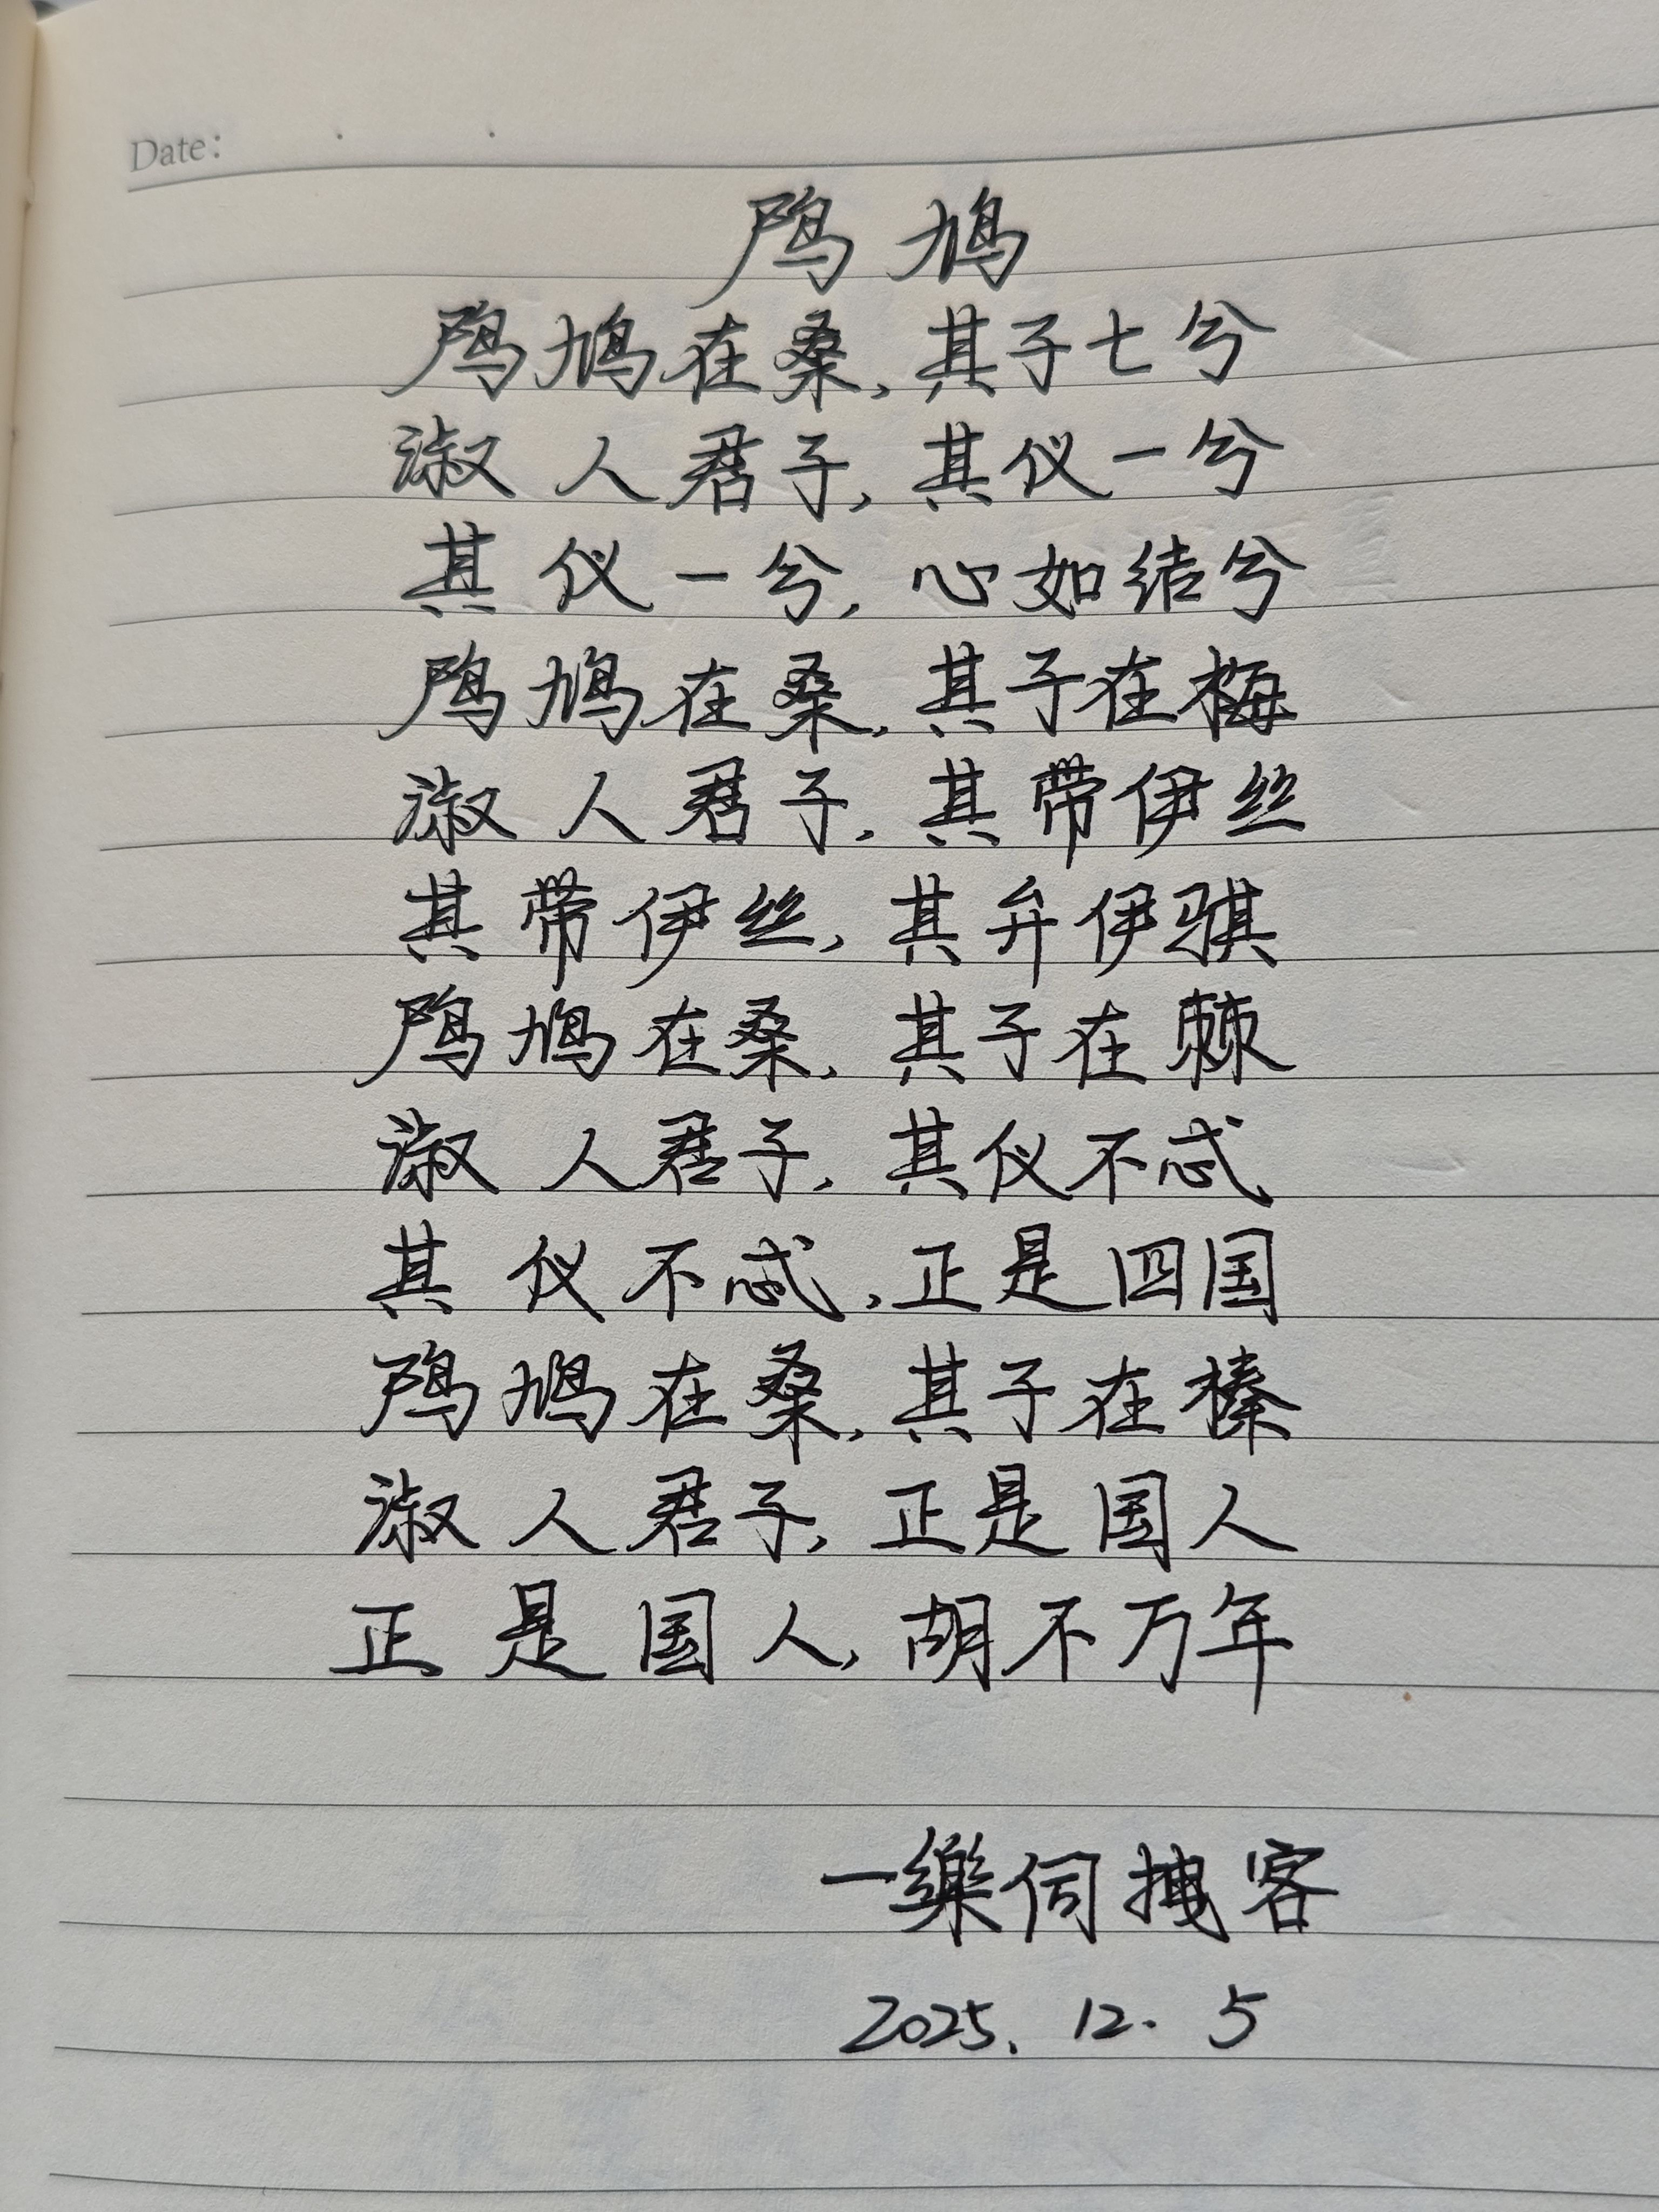 Date:
鸤鸠
鸤鸠在桑,其子七兮
淑人君子,其仪一兮
其仪一兮,心如结兮
鸤鸠在桑,其子在梅
淑人君子,其带伊丝
其带伊丝,其弁伊骐
鸤鸠在桑,其子在棘
淑人君子,其仪不忒
其仪不忒,正是四国
鸤鸠在桑,其子在榛
淑人君子,正是国人
正是国人,胡不万年
一樂伺拽客
2025.12.5